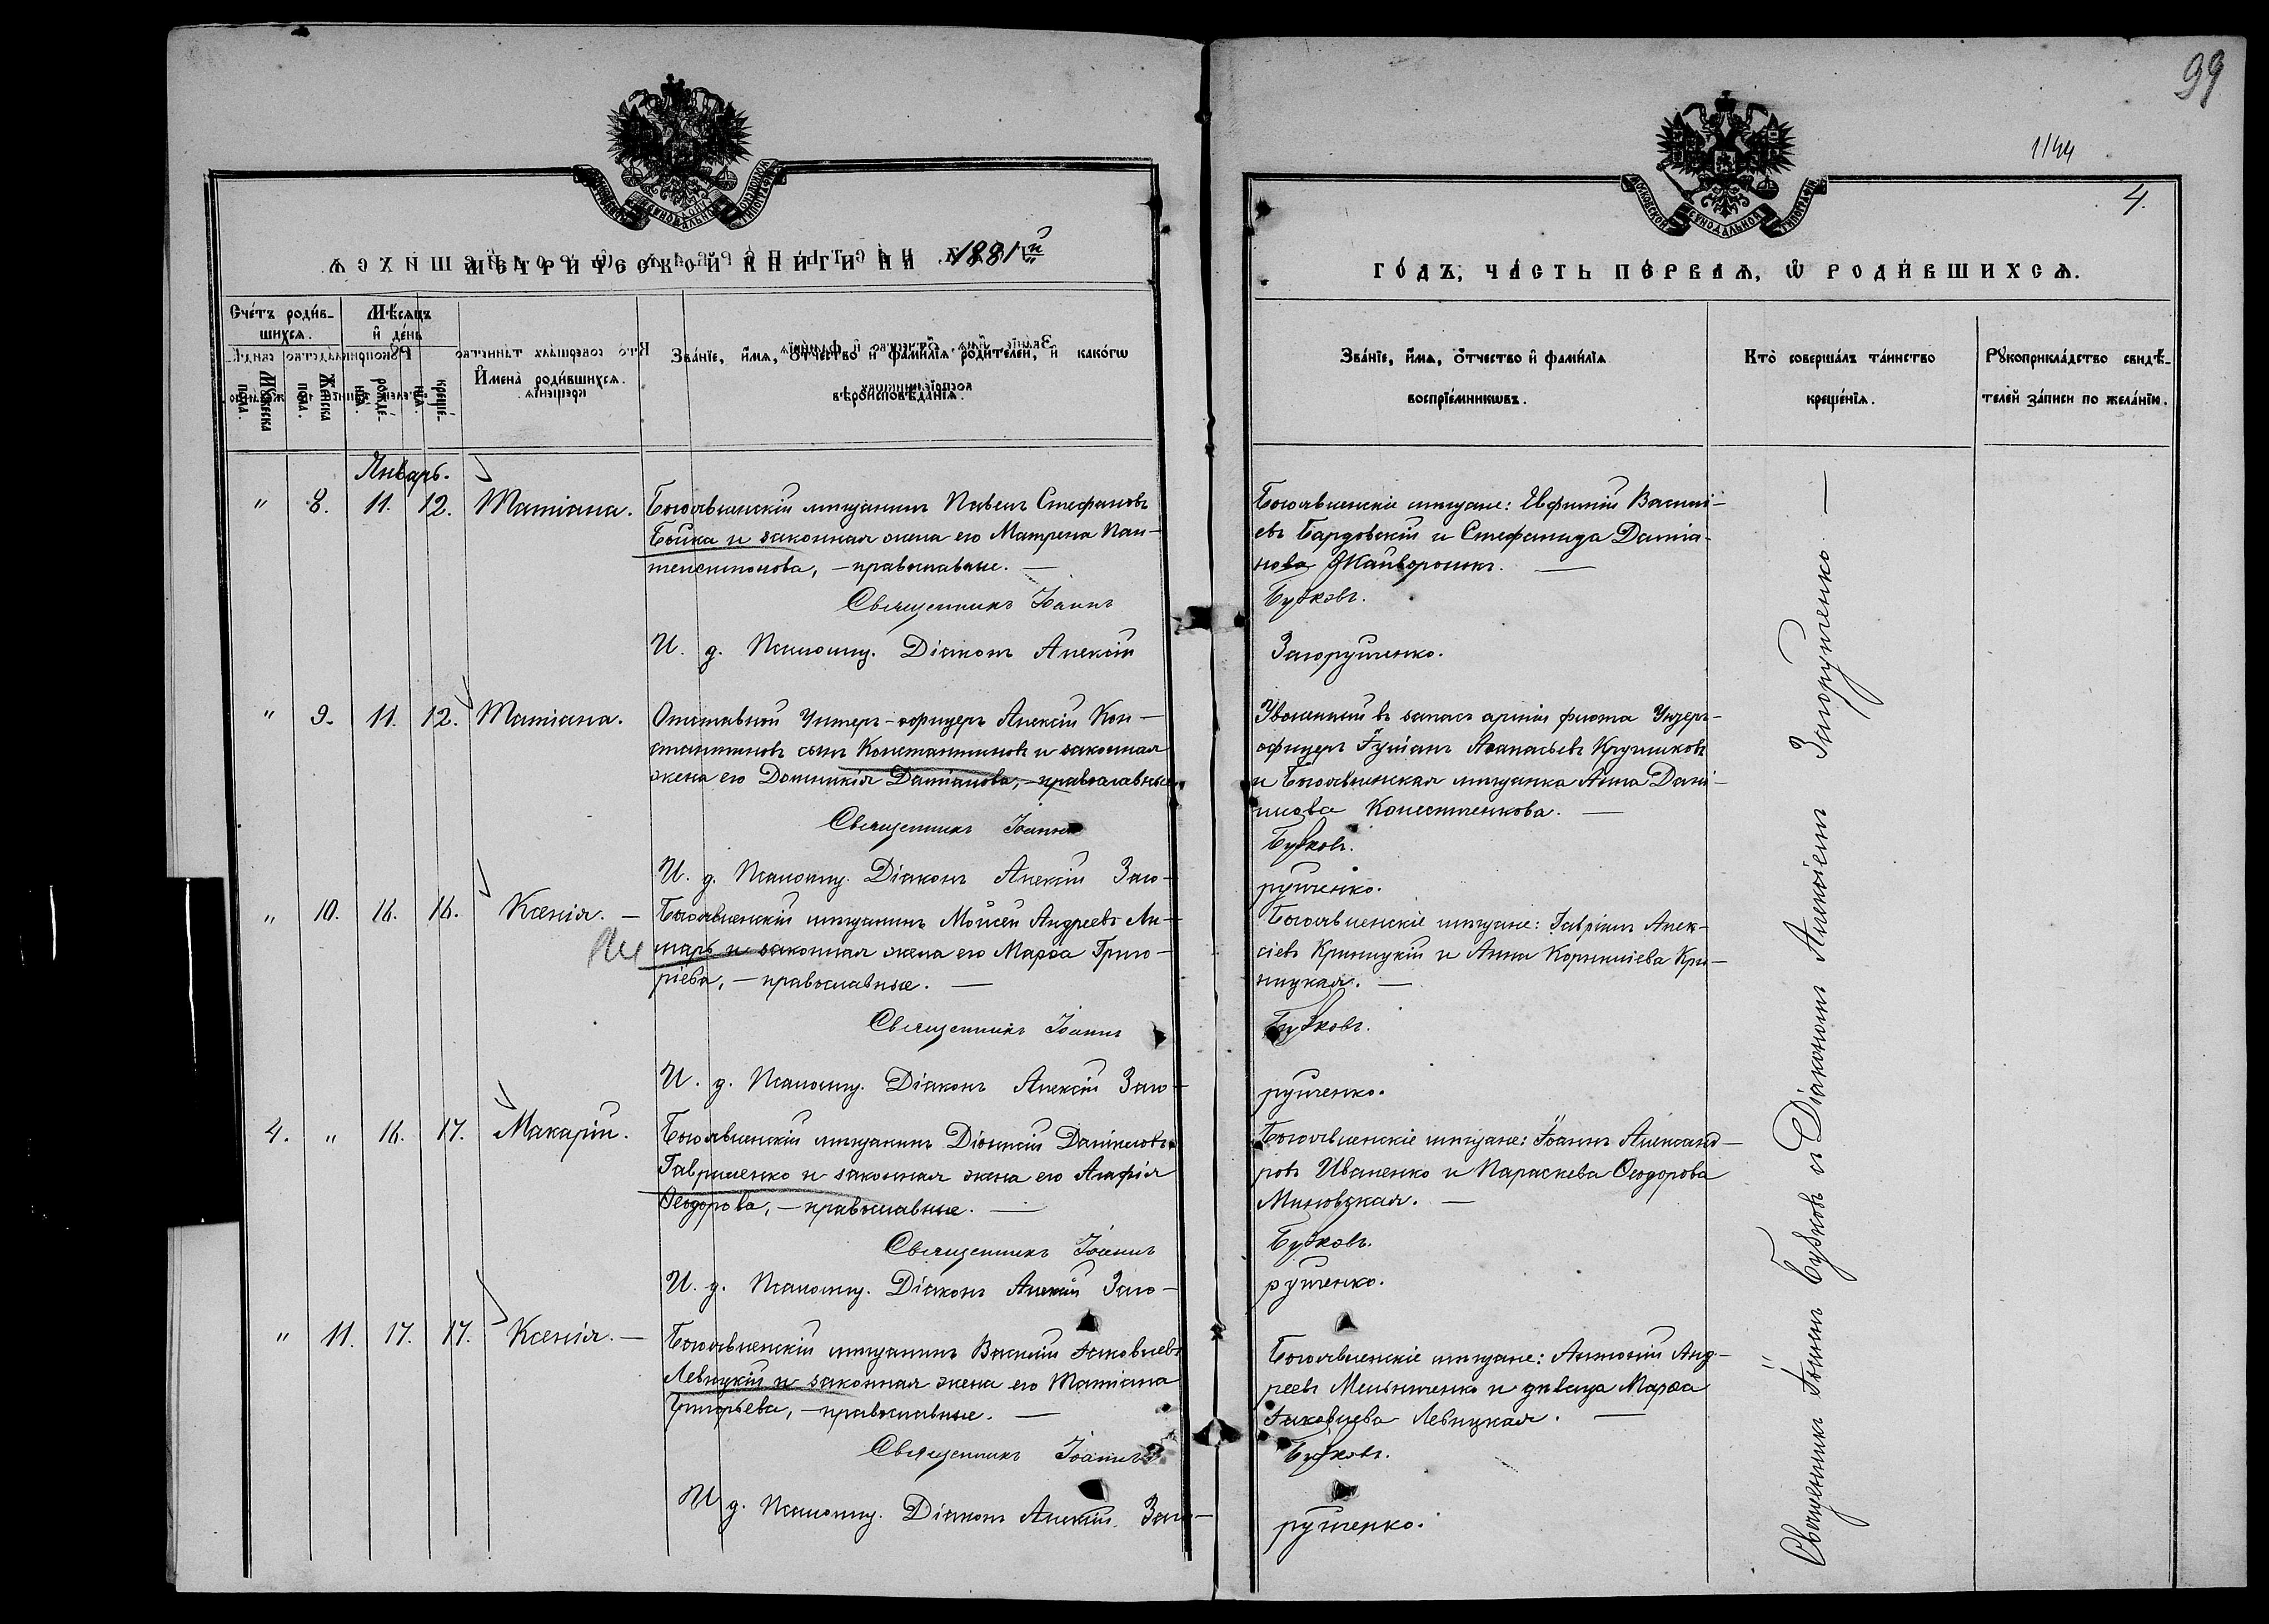 99
1144
4.
МОСКОВСКОЙ СѴНОДАЛЬНОЙ ТИПОГРАФІИ
МЕТРИЧЕСКОЙ КНИГИ НА 1881й
ГОДЪ, ЧАСТЬ ПЕРВАЯ, Ѡ РОДИВШИХСЯ.
Счетъ родившихся.
Мѣсяцъ и день
Мужеска пола.
Женска пола.
рожденія.
крещенія.
Имена родившихся.
Званіе, имя, отчество и фамилія родителей, и какогѡ
вѣроисповѣданія.
Званіе, имя, отчество и фамилія
воспріемникѡвъ.
Кто совершалъ таинство
крещенія.
Рукоприкладство свидѣ-
телей записи по желанію.
Январь.
" 8. 11. 12. Татіана.
Богоявленскій мѣщанинъ Павелъ Стефановъ
Бойка и законная жена его Матрена Пан-
телеимонова, – православные. –
Священникъ Іоаннъ
И. д. Псаломщ. Діаконъ Алексій
Богоявленскіе мѣщане: Евфимій Василі-
евъ Бардовскій и Стефанида Даміа-
нова
Бубковъ.
Загорулченко.
" 9. 11. 12. Татіана.
Отставной Унтеръ-офицеръ Алексій Кон-
стантиновъ сынъ Константиновъ и законная
жена его Домникія Даміанова, – православные.
Священникъ Іоаннъ
И. д. Псаломщ. Діаконъ Алексій Заго-
Уволенный въ запасъ арміи флота Унтеръ-
офицеръ Аѳанасьевъ Кручиковъ
и Богоявленская мѣщанка Анна Дані-
илова
Бубковъ.
рулченко.
" 10. 16. 16. Ксенія. –
Богоявленскій мѣщанинъ Мойсей Андреевъ Ли-
марь и законная жена его Марѳа Григо-
ріева, – православные. –
Священникъ Іоаннъ
И. д. Псаломщ. Діаконъ Алексій Заго-
Богоявленскіе мѣщане: Гавріилъ Алек-
сіевъ Криницкій и Анна Корниліева Кри-
ницкая. –
Бубковъ.
рулченко.
4. " 16. 17. Макарій.
Богоявленскій мѣщанинъ Діонисій Даніиловъ
Гавриленко и законная жена его Агафія
Ѳеодорова, – православные. –
Священникъ Іоаннъ
И. д. Псаломщ. Діаконъ Алексій Заго-
Богоявленскіе мѣщане: Іоаннъ Александ-
ровъ Иваненко и Параскева Ѳеодорова
Бубковъ.
рулченко.
" 11. 17. 17. Ксенія. –
Богоявленскій мѣщанинъ Василій Іаковлевъ
Левицкій и законная жена его Татіана
Григорьева, – православные. –
Священникъ Іоаннъ
И д. Псаломщ. Діаконъ Алексій Заго-
Богоявленскіе мѣщане: Антоній Анд-
реевъ Мельниченко и дѣвица Марѳа
Іаковлева Левицкая. –
Бубковъ.
рулченко.
Священникъ Іоаннъ Бубковъ и Діаконъ Алексіемъ Загорулченко –